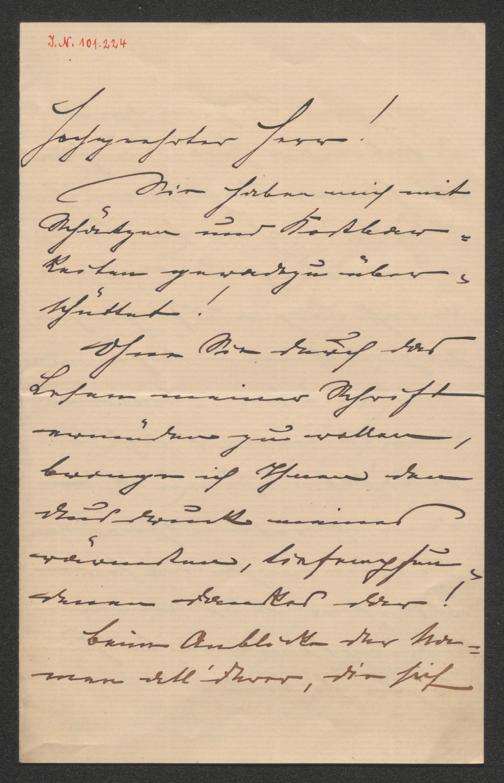 J. N. 101.224
Hochgeehrter Herr!
Sie haben mich mit
Schätzen und Kostbar=
keiten geradezu über=
schüttet!
Ohne Sie durch das
Lesen meiner Schrift
ermüden zu wollen,
bringe ich Ihnen den
Ausdruck meines
wärmsten, tiefempfun=
denen Dankes dar!
Beim Anblicke der Na=
men all' derer, die sich